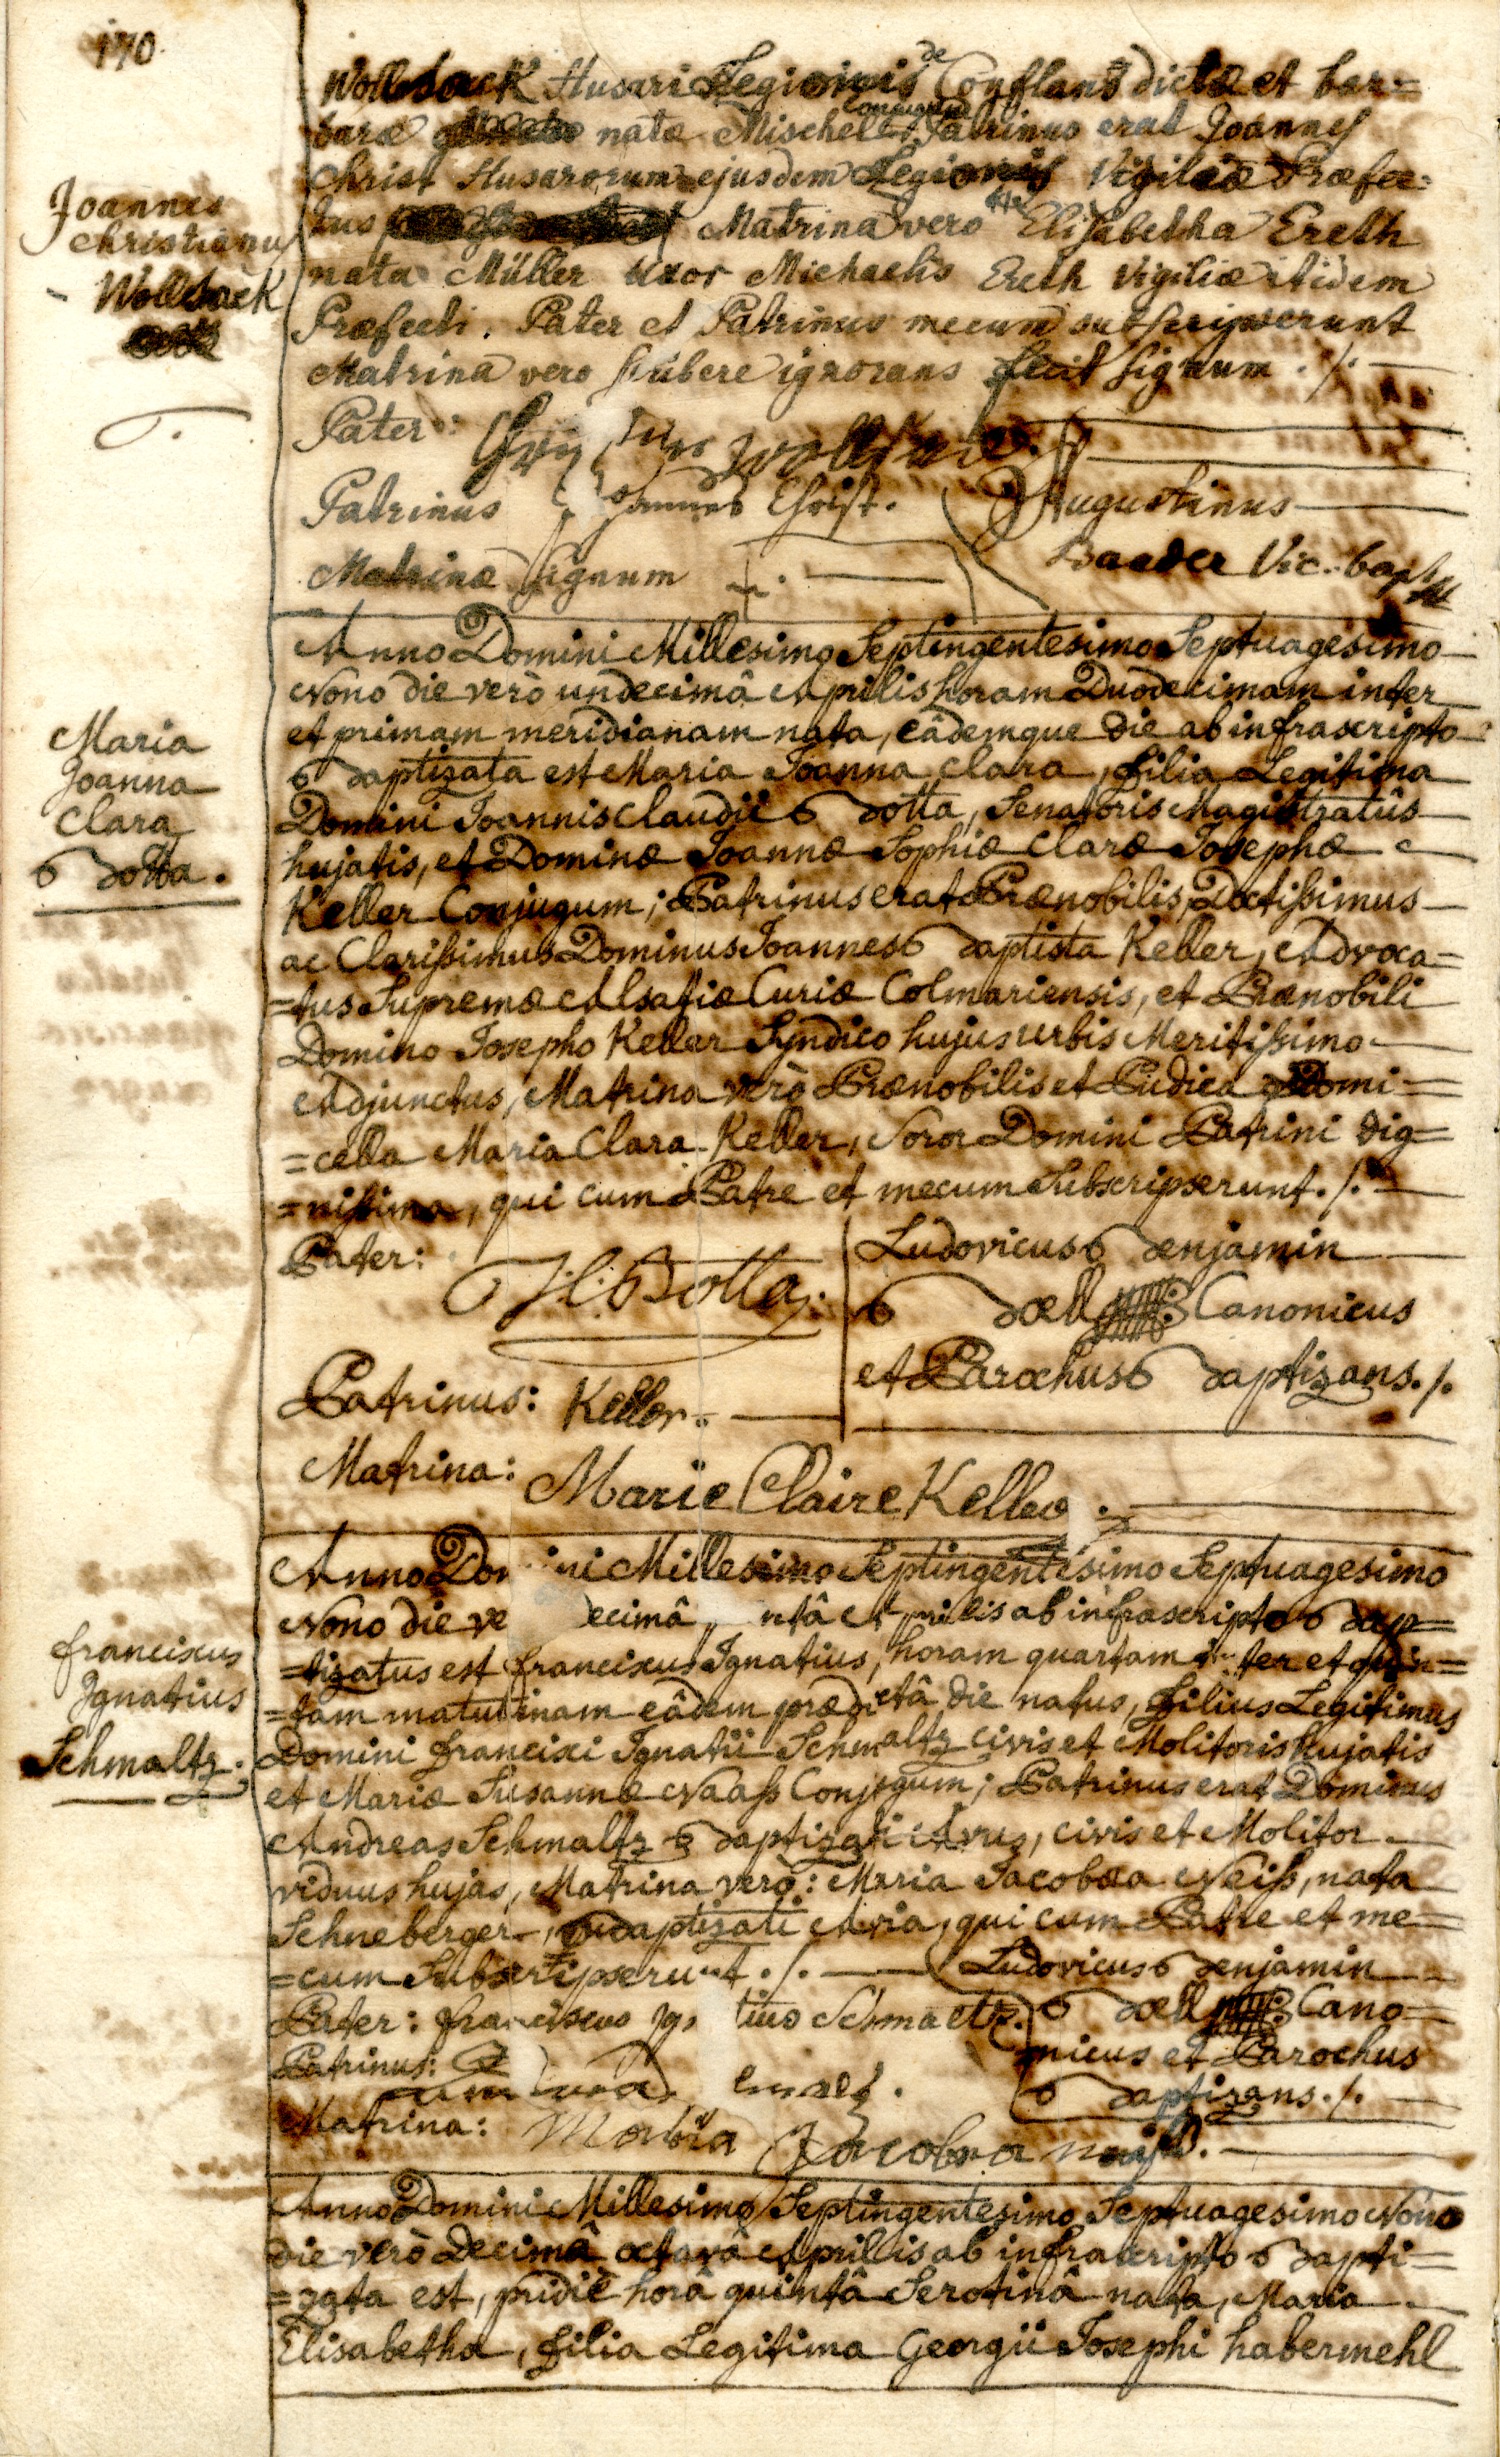 170.
Wollsack Husari Legionis de Conflans dictæ et bar=
baræ natæ Mischel Conjugum Patrinus erat Joannes
Christ Husarorum ejusdem Legionis Vigiliæ Præfec=
tus Matrina vero Elisabetha Ereth
nata Müller uxor Michaelis Ereth Vigiliæ itidem
Præfecti. Pater et Patrinus mecum subscripserunt
Matrina vero scribere ignorans fecit signum ./.
Joannes
Christianus
Wollsack
Pater:
Patrinus Johannes Christ.
Matrinæ signum +.
Augustinus
Baader Vic. bapt
Anno Domini Millesimo Septingentesimo Septuagesimo
Nono die verò undecimâ Aprilis horam Duodecimam inter
et primam meridianam nata, eâdemque die ab infrascripto
Baptizata est Maria Joanna Clara, filia Legitima
Domini Joannis Claudii Botta, Senatoris Magistratûs
hujatis, et Dominæ Joannæ Sophiæ Claræ Josephæ
Keller Conjugum; Patrinus erat Prænobilis, Doctissimus
ac Clarissimus Dominus Joannes Baptista Keller, Advoca=
=tus Supremæ Alsatiæ Curiæ Colmariensis, et Prænobili
Domino Josepho Keller Syndico hujus urbis Meritissimo
Adjunctus, Matrina verò Prænobilis et Pudica Domi=
=cella Maria Clara Keller, Soror Domini Patrini dig=
=nissima, qui cum Patre et mecum Subscripserunt./.
Maria
Joanna
Clara
Botta.
Pater: J.C. Botta.
Ludovicus Benjamin
Bœll Canonicus
et Parochus Baptizans./.
Patrinus: Keller.
Matrina: Marie Claire Keller.
Anno Domini Millesimo Septingentesimo Septuagesimo
Nono die ve decimâ ntâ Aprilis ab infrascripto Bap=
=tizatus est franciscus Ignatius, horam quartam inter et quin=
=tam matutinam eâdem prædictâ die natus, filius Legitimus
Domini francisci Ignatii Schmaltz civis et Molitoris hujatis
et Mariæ Susannæ Naass Conjugum; Patrinus erat Dominus
Andreas Schmaltz Baptizati Avus, civis et Molitor
viduus hujas, Matrina verò: Maria Jacobæa Neiss, nata
Schneberger, Baptizati Avia, qui cum Patre et me=
=cum Subscripserunt./.
franciscus
Ignatius
Schmaltz.
Ludovicus Benjamin
Bœll Cano=
nicus et Parochus
Baptizans./.
Pater: franciscus Ig tius Schmaltz.
Patrinus:
Matrina: Maria Jacobea neiss.
Anno Domini Millesimo Septingentesimo Septuagesimo Nono
die verò Decimâ octavâ Aprilis ab infrascripto Bapti=
=zata est, pridiè horâ quintâ Serotinâ nata, Maria
Elisabetha, filia Legitima Georgii Josephi habermehl